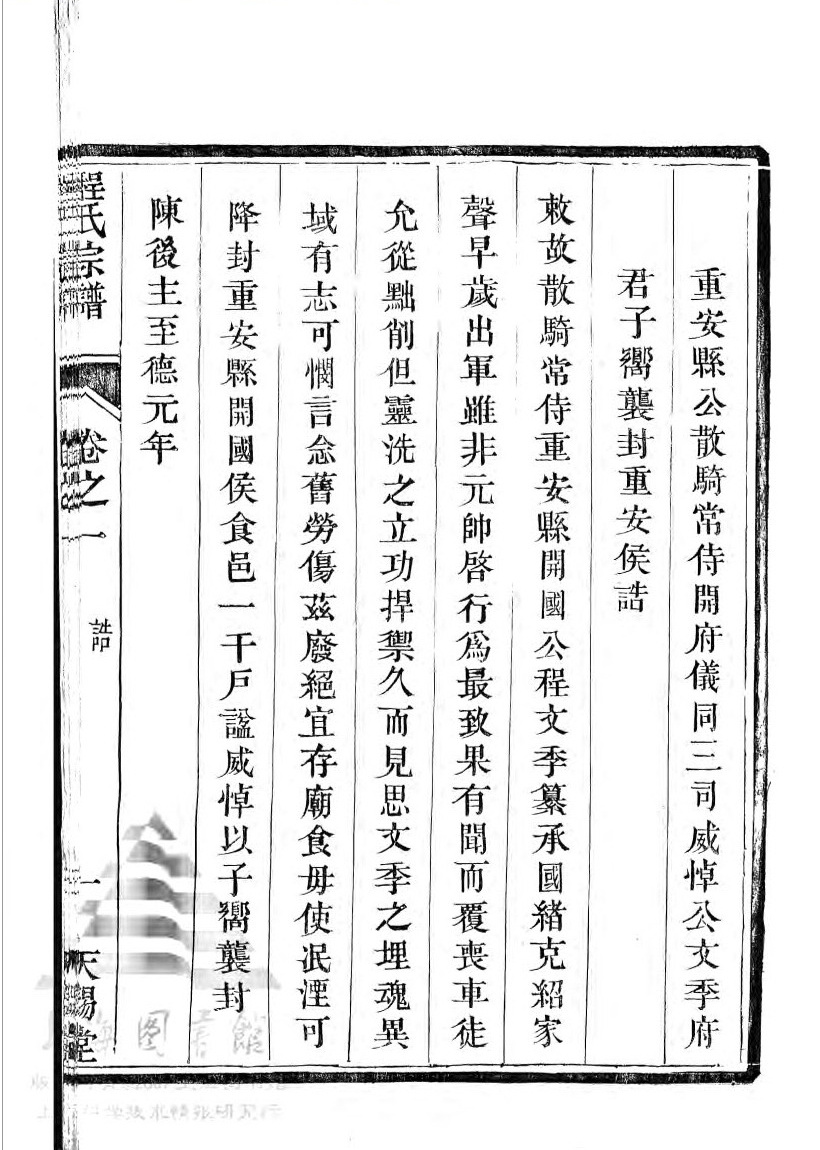 重安縣公散騎常侍開府儀同三司威悼公文季府
君子嚮襲封重安侯誥
敕故散騎常侍重安縣開國公程文季纂承國緒克紹家
聲早歲出軍雖非元帥啓行爲最致果有聞而覆喪車徒
允從黜削但靈洗之立功捍禦久而見思文季之埋魂異
域有志可憫言念舊勞傷茲廢絕宜存廟食毋使泯湮可
降封重安縣開國侯食邑一千戶諡威悼以子嚮襲封
陳後主至德元年
程氏宗譜 卷之一 誥 一 天錫堂
圖書館